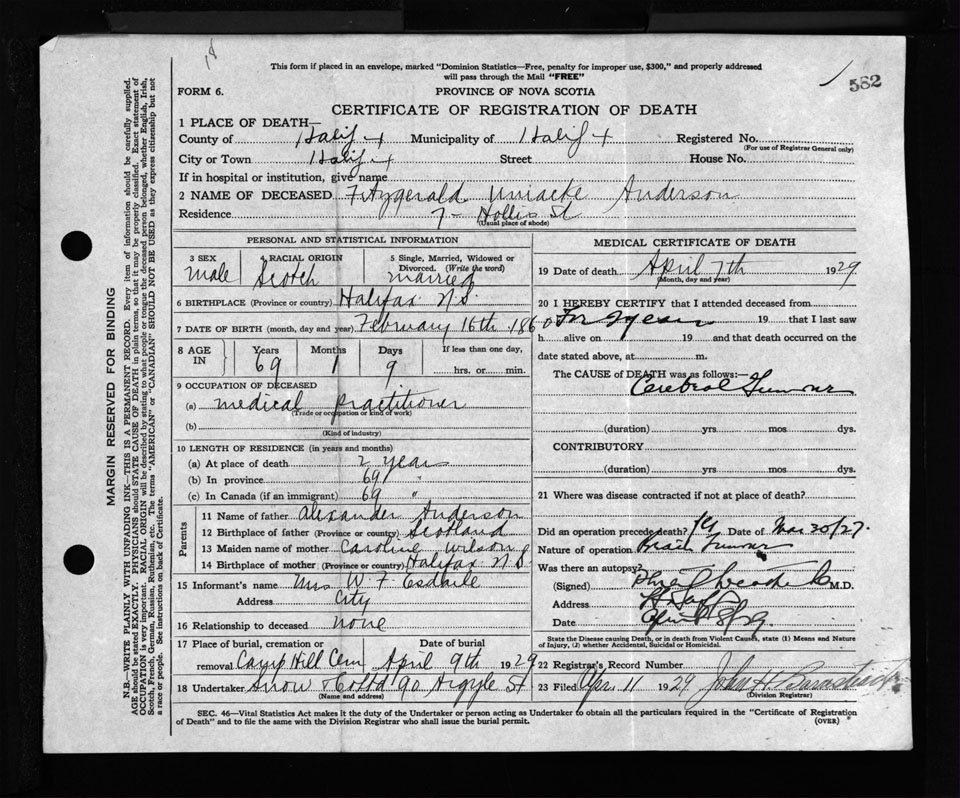 This form if placed in an envelope, marked "Dominion Statistics—Free, penalty for improper use, $300," and properly addressed
will pass through the Mail "FREE"
582
FORM 6.
PROVINCE OF NOVA SCOTIA
CERTIFICATE OF REGISTRATION OF DEATH
1 PLACE OF DEATH—
County of Halifx Municipality of Halifx Registered No.
(For use of Registrar General only)
City or Town Halifx Street House No.
If in hospital or institution, give name
2 NAME OF DECEASED Fitzgerald Uniacke Anderson
Residence 7- Hollis St
(Usual place of abode)
PERSONAL AND STATISTICAL INFORMATION
3 SEX male
4 RACIAL ORIGIN Scotch
5 Single, Married, Widowed or Divorced. (Write the word) married
6 BIRTHPLACE (Province or country) Halifax N.S.
7 DATE OF BIRTH (month, day and year) February 16th 1860
8 AGE IN Years Months Days If less than one day,
69 1 9 hrs. or min.
9 OCCUPATION OF DECEASED
(a) medical Practitioner
(Trade or occupation or kind of work)
(b)
(Kind of industry)
10 LENGTH OF RESIDENCE (in years and months)
(a) At place of death 2 year
(b) In province 69 "
(c) In Canada (if an immigrant) 69 "
Parents
11 Name of father Alexander Anderson
12 Birthplace of father (Province or country) Scotland
13 Maiden name of mother Caroline Wilson
14 Birthplace of mother (Province or country) Halifax N.S
15 Informant's name Mrs W. F Esdaile
Address City
16 Relationship to deceased none
17 Place of burial, cremation or removal Camp Hill Cem
Date of burial April 9th 1929
18 Undertaker Snow & Co Ltd 90 Argyle St
(Name and address)
MEDICAL CERTIFICATE OF DEATH
19 Date of death April 7th 1929
(Month, day and year)
20 I HEREBY CERTIFY that I attended deceased from
For 2 years 19 that I last saw
h alive on 19 and that death occurred on the
date stated above, at m.
The CAUSE of DEATH was as follows:—
Cerebral Tumour
(duration) yrs mos dys.
CONTRIBUTORY
(duration) yrs mos dys.
21 Where was disease contracted if not at place of death?
Did an operation precede death? Yes Date of Mar 30/27.
Nature of operation Brain Tumor
Was there an autopsy?
(Signed) M.D.
Address
Date April 8/29.
State the Disease causing Death, or in death from Violent Causes, state (1) Means and Nature
of Injury, (2) whether Accidental, Suicidal or Homicidal.
22 Registrar's Record Number
23 Filed Apr. 11 1929 John H.
(Division Registrar)
SEC. 46—Vital Statistics Act makes it the duty of the Undertaker or person acting as Undertaker to obtain all the particulars required in the "Certificate of Registration
of Death" and to file the same with the Division Registrar who shall issue the burial permit.
(OVER)
MARGIN RESERVED FOR BINDING
N.B.—WRITE PLAINLY WITH UNFADING INK—THIS IS A PERMANENT RECORD. Every item of information should be carefully supplied.
AGE should be stated EXACTLY. PHYSICIANS should STATE CAUSE OF DEATH in plain terms, so that it may be properly classified. Exact statement of
OCCUPATION is very important. RACIAL ORIGIN will be described by stating to what people or tongue the deceased person belonged, whether English, Irish,
Scotch, French, German, Russian, Ruthenian, etc. The terms "AMERICAN" or "CANADIAN" SHOULD NOT BE USED as they express citizenship but not
a race or people. See instructions on back of Certificate.